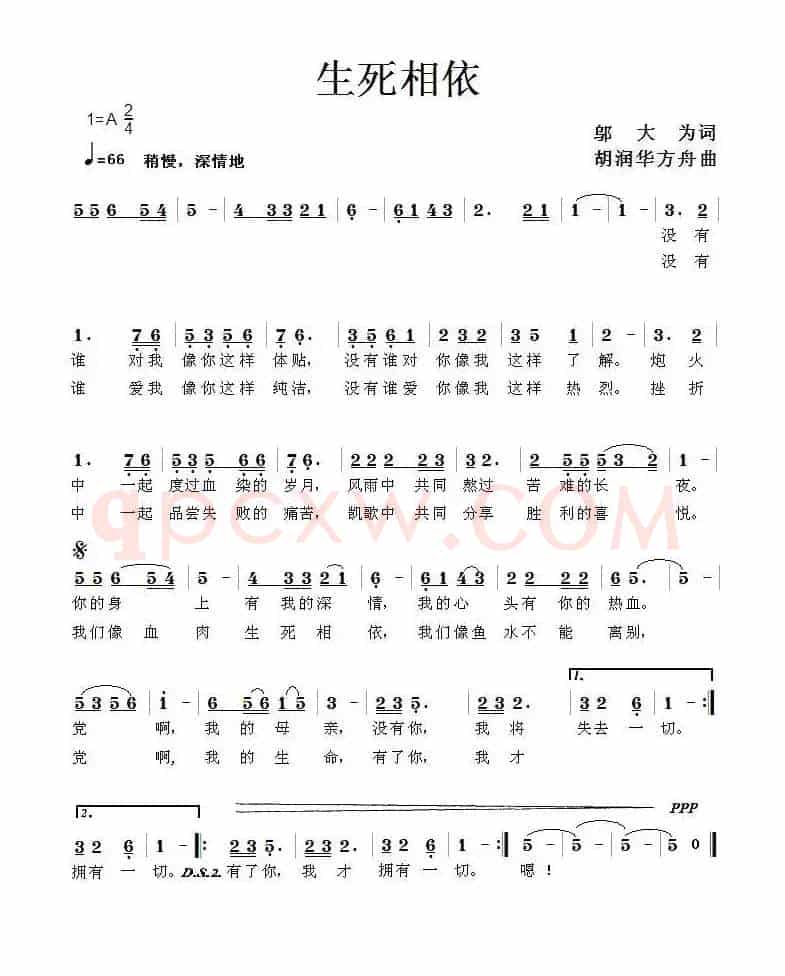 生死相依
1=A 2/4
邬大为词
♩=66 稍慢，深情地
胡润华方舟曲
5 5 6 5 4 | 5 - | 4 3 3 2 1 | 6 - | 6 1 4 3 | 2. 2 1 | 1 - | 1 - | 3. 2
没有
没有
1. 7 6 | 5 3 5 6 | 7 6. | 3 5 6 1 | 2 3 2 | 3 5 1 | 2 - | 3. 2
谁 对我 像你这样 体贴， 没有谁对 你像我 这样 了 解。 炮 火
谁 爱我 像你这样 纯洁， 没有谁爱 你像我 这样 热 烈。 挫 折
1. 7 6 | 5 3 5 6 6 | 7 6. | 2 2 2 2 3 | 3 2. | 2 5 5 5 3 2 | 1 -
中 一起 度过血 染的 岁月， 风雨中 共同 熬过 苦 难的长 夜。
中 一起 品尝失 败的 痛苦， 凯歌中 共同 分享 胜 利的喜 悦。
qpcxw.COM
5 5 6 5 4 | 5 - | 4 3 3 2 1 | 6 - | 6 1 4 3 | 2 2 2 2 | 6 5. | 5 -
你的身 上 有 我的深 情， 我的心 头有 你的 热血。
我们像 血 肉 生 死相 依， 我们像鱼 水不 能 离别，
1.
5 3 5 6 | i - | 6 5 6 i 5 | 3 - | 2 3 5. | 2 3 2. | 3 2 6 | 1 - :|
党 啊， 我 的 母 亲， 没有你， 我 将 失去 一 切。
党 啊, 我 的 生 命， 有了你， 我 才
2.
PPP
3 2 6 | 1 - :| 2 3 5. | 2 3 2. | 3 2 6 | 1 - :| 5 - | 5 - | 5 - | 5 0 ‖
拥有 一 切。 D.S.2. 有了你， 我 才 拥有 一 切。 嗯！